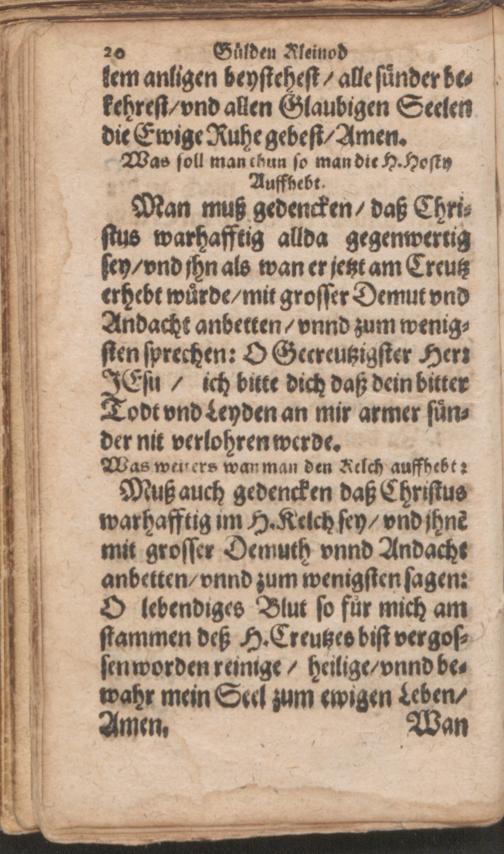 20 Gülden Kleinod
lem anligen beystehest / alle sünder be-
kehrest/vnd allen Glaubigen Seelen
die Ewige Ruhe gebest/Amen.
Was soll man thun so man die H. Hosty
Auffhebt.
Man muß gedencken / daß Chri-
stus warhafftig allda gegenwertig
sey/vnd jhn als wan er jetzt am Creutz
erhebt würde/mit grosser Demut vnd
Andacht anbetten/vnnd zum wenig-
sten sprechen: O Gecreutzigster Herr
JEsu / ich bitte dich daß dein bitter
Todt vnd Leyden an mir armer sün-
der nit verlohren werde.
Was weiters wan man den Kelch auffhebt?
Muß auch gedencken daß Christus
warhafftig im H. Kelch sey/vnd jhnē
mit grosser Demuth vnnd Andacht
anbetten/vnnd zum wenigsten sagen:
O lebendiges Blut so für mich am
stammen deß H. Creutzes bist vergos-
sen worden reinige / heilige/vnnd be-
wahr mein Seel zum ewigen Leben/
Amen. Wan